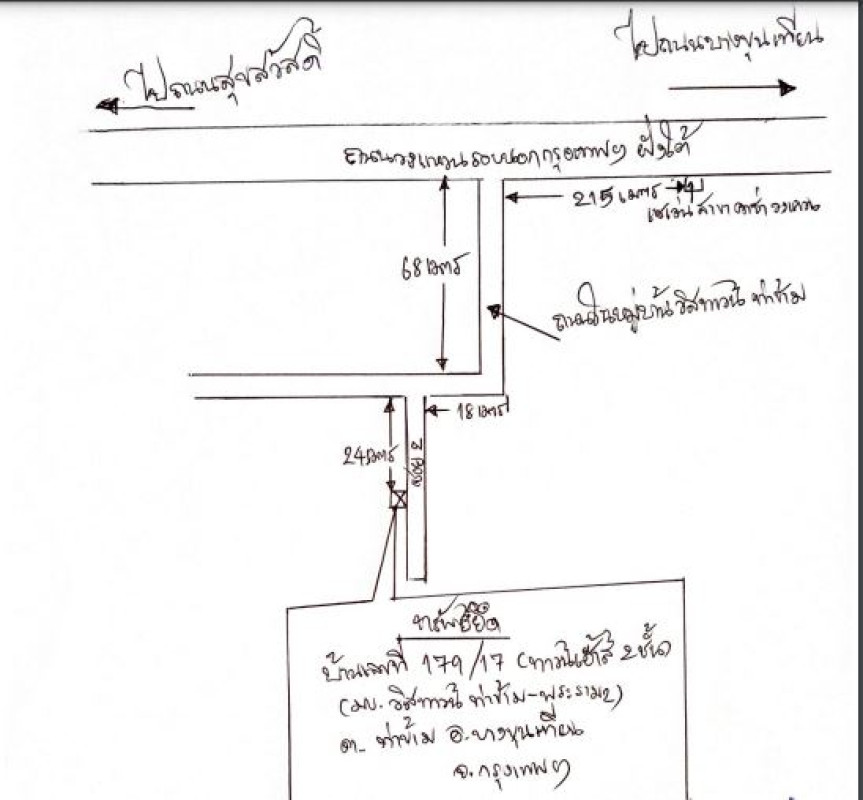 ไปถนนสุขสวัสดิ์
ไปถนนบางขุนเทียน
ถนนวงแหวนรอบนอกกรุงเทพฯ ฝั่งใต้
215 เมตร
เซเว่น สาขา วงแหวน
68 เมตร
ถนนในหมู่บ้าน วิสทาวน์ ท่าข้าม
18 เมตร
24 เมตร
ทรัพย์ยึด
บ้านเลขที่ 179/17 (ทาวน์เฮ้าส์ 2 ชั้น)
(มบ. วิสทาวน์ ท่าข้าม-พระราม2)
ต. ท่าข้าม อ.บางขุนเทียน
จ.กรุงเทพฯ